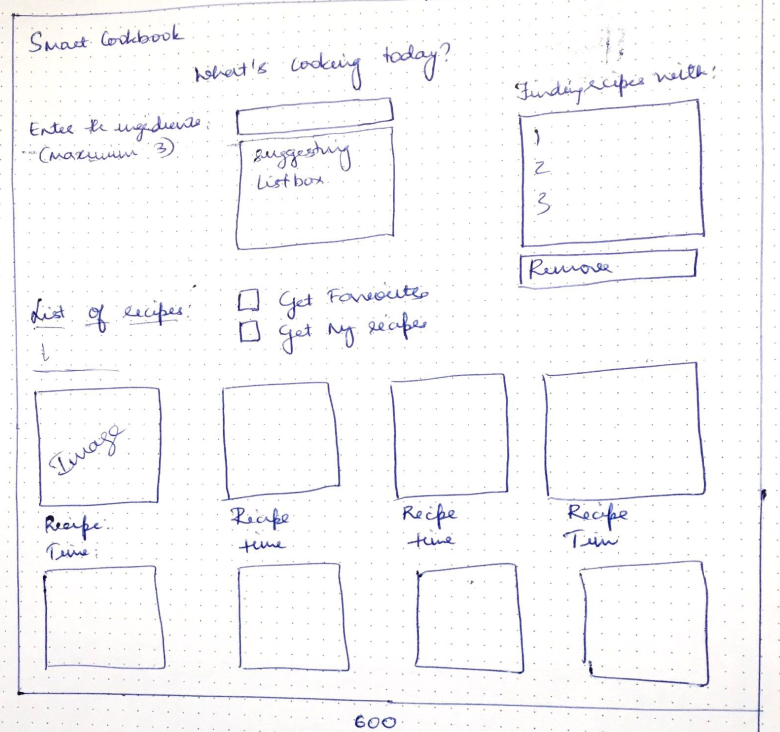 Smart Cookbook
What's cooking today?
Enter the ingredients:
(maximum 3)
suggesting
listbox
Finding recipes with:
1
2
3
Remove
List of recipes:
Get Favourites
Get My recipes
Image
Recipe:
Time:
Recipe
time
Recipe
time
Recipe
Tim
600